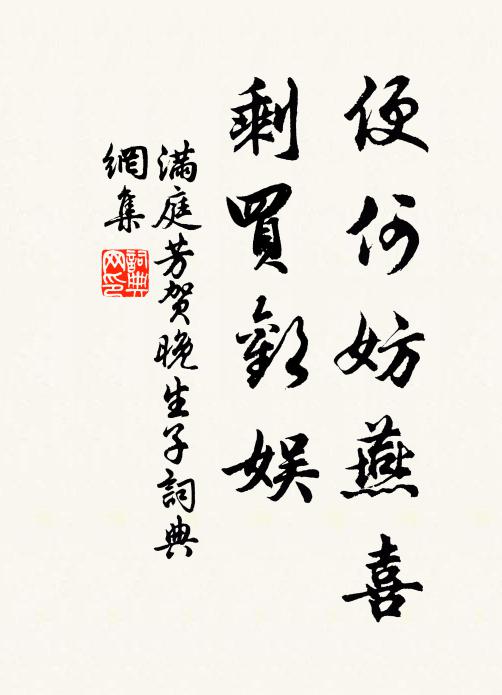 便何妨燕喜
剩買歡娛
滿庭芳賀晚生子詞典
網集
詞典
网印